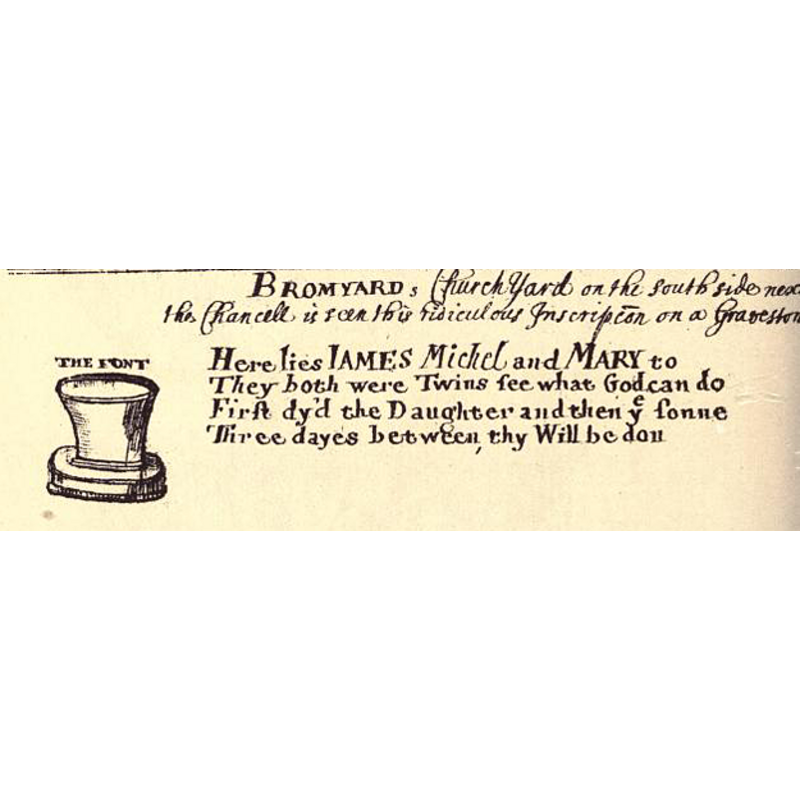 BROMYARDs Church Yard on the south side nex
the Chancell is seen this ridiculous Inscripc̄on on a Graveston
THE FONT
Here lies IAMES Michel and MARY to
They both were Twins see what God can do
First dy'd the Daughter and then yͤ sonne
Three dayes between, thy Will be don